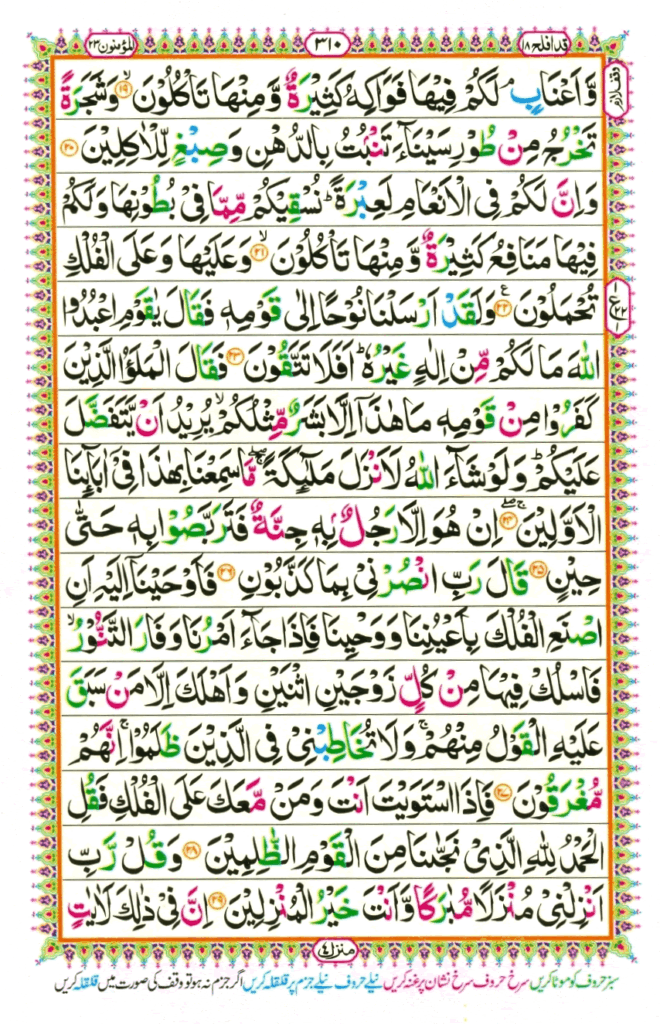 قد افلح ١٨
٣١٠
المؤمنون ٢٣
وَّاَعْنَابٍ ۘ لَكُمْ فِيْهَا فَوَاكِهُ كَثِيْرَةٌ وَّمِنْهَا تَاْكُلُوْنَ ۙ﴿۱۹﴾ وَشَجَرَةً
تَخْرُجُ مِنْ طُوْرِ سَيْنَآءَ تَنْۢبُتُ بِالدُّهْنِ وَصِبْغٍ لِّلْاٰكِلِيْنَ ﴿۲۰﴾
وَاِنَّ لَكُمْ فِى الْاَنْعَامِ لَعِبْرَةً ؕ نُسْقِيْكُمْ مِّمَّا فِىْ بُطُوْنِهَا وَلَكُمْ
فِيْهَا مَنَافِعُ كَثِيْرَةٌ وَّمِنْهَا تَاْكُلُوْنَ ۙ﴿۲۱﴾ وَعَلَيْهَا وَعَلَى الْفُلْكِ
تُحْمَلُوْنَ ﴿۲۲﴾ وَلَقَدْ اَرْسَلْنَا نُوْحًا اِلٰى قَوْمِهٖ فَقَالَ يٰقَوْمِ اعْبُدُوا
اللّٰهَ مَا لَكُمْ مِّنْ اِلٰهٍ غَيْرُهٗ ؕ اَفَلَا تَتَّقُوْنَ ﴿۲۳﴾ فَقَالَ الْمَلَؤُا الَّذِيْنَ
كَفَرُوْا مِنْ قَوْمِهٖ مَا هٰذَاۤ اِلَّا بَشَرٌ مِّثْلُكُمْ ۙ يُرِيْدُ اَنْ يَّتَفَضَّلَ
عَلَيْكُمْ ؕ وَلَوْ شَآءَ اللّٰهُ لَاَنْزَلَ مَلٰٓئِكَةً ۖۚ مَّا سَمِعْنَا بِهٰذَا فِىْۤ اٰبَآئِنَا
الْاَوَّلِيْنَ ۚ﴿۲۴﴾ اِنْ هُوَ اِلَّا رَجُلٌۢ بِهٖ جِنَّةٌ فَتَرَبَّصُوْا بِهٖ حَتّٰى
حِيْنٍ ﴿۲۵﴾ قَالَ رَبِّ انْصُرْنِىْ بِمَا كَذَّبُوْنِ ﴿۲۶﴾ فَاَوْحَيْنَاۤ اِلَيْهِ اَنِ
اصْنَعِ الْفُلْكَ بِاَعْيُنِنَا وَوَحْيِنَا فَاِذَا جَآءَ اَمْرُنَا وَفَارَ التَّنُّوْرُ ۙ
فَاسْلُكْ فِيْهَا مِنْ كُلٍّ زَوْجَيْنِ اثْنَيْنِ وَاَهْلَكَ اِلَّا مَنْ سَبَقَ
عَلَيْهِ الْقَوْلُ مِنْهُمْ ۚ وَلَا تُخَاطِبْنِىْ فِى الَّذِيْنَ ظَلَمُوْا ۚ اِنَّهُمْ
مُّغْرَقُوْنَ ﴿۲۷﴾ فَاِذَا اسْتَوَيْتَ اَنْتَ وَمَنْ مَّعَكَ عَلَى الْفُلْكِ فَقُلِ
الْحَمْدُ لِلّٰهِ الَّذِىْ نَجّٰىنَا مِنَ الْقَوْمِ الظّٰلِمِيْنَ ﴿۲۸﴾ وَقُلْ رَّبِّ
اَنْزِلْنِىْ مُنْزَلًا مُّبٰرَكًا وَّاَنْتَ خَيْرُ الْمُنْزِلِيْنَ ﴿۲۹﴾ اِنَّ فِىْ ذٰلِكَ لَاٰيٰتٍ
منزل ۴
سبز حروف کو موٹا کریں سرخ حروف سرخ نشان پر غنہ کریں نیلے حروف نیلے جزم پر قلقلہ کریں اگر جزم نہ ہو تو وقف کی صورت میں قلقلہ کریں